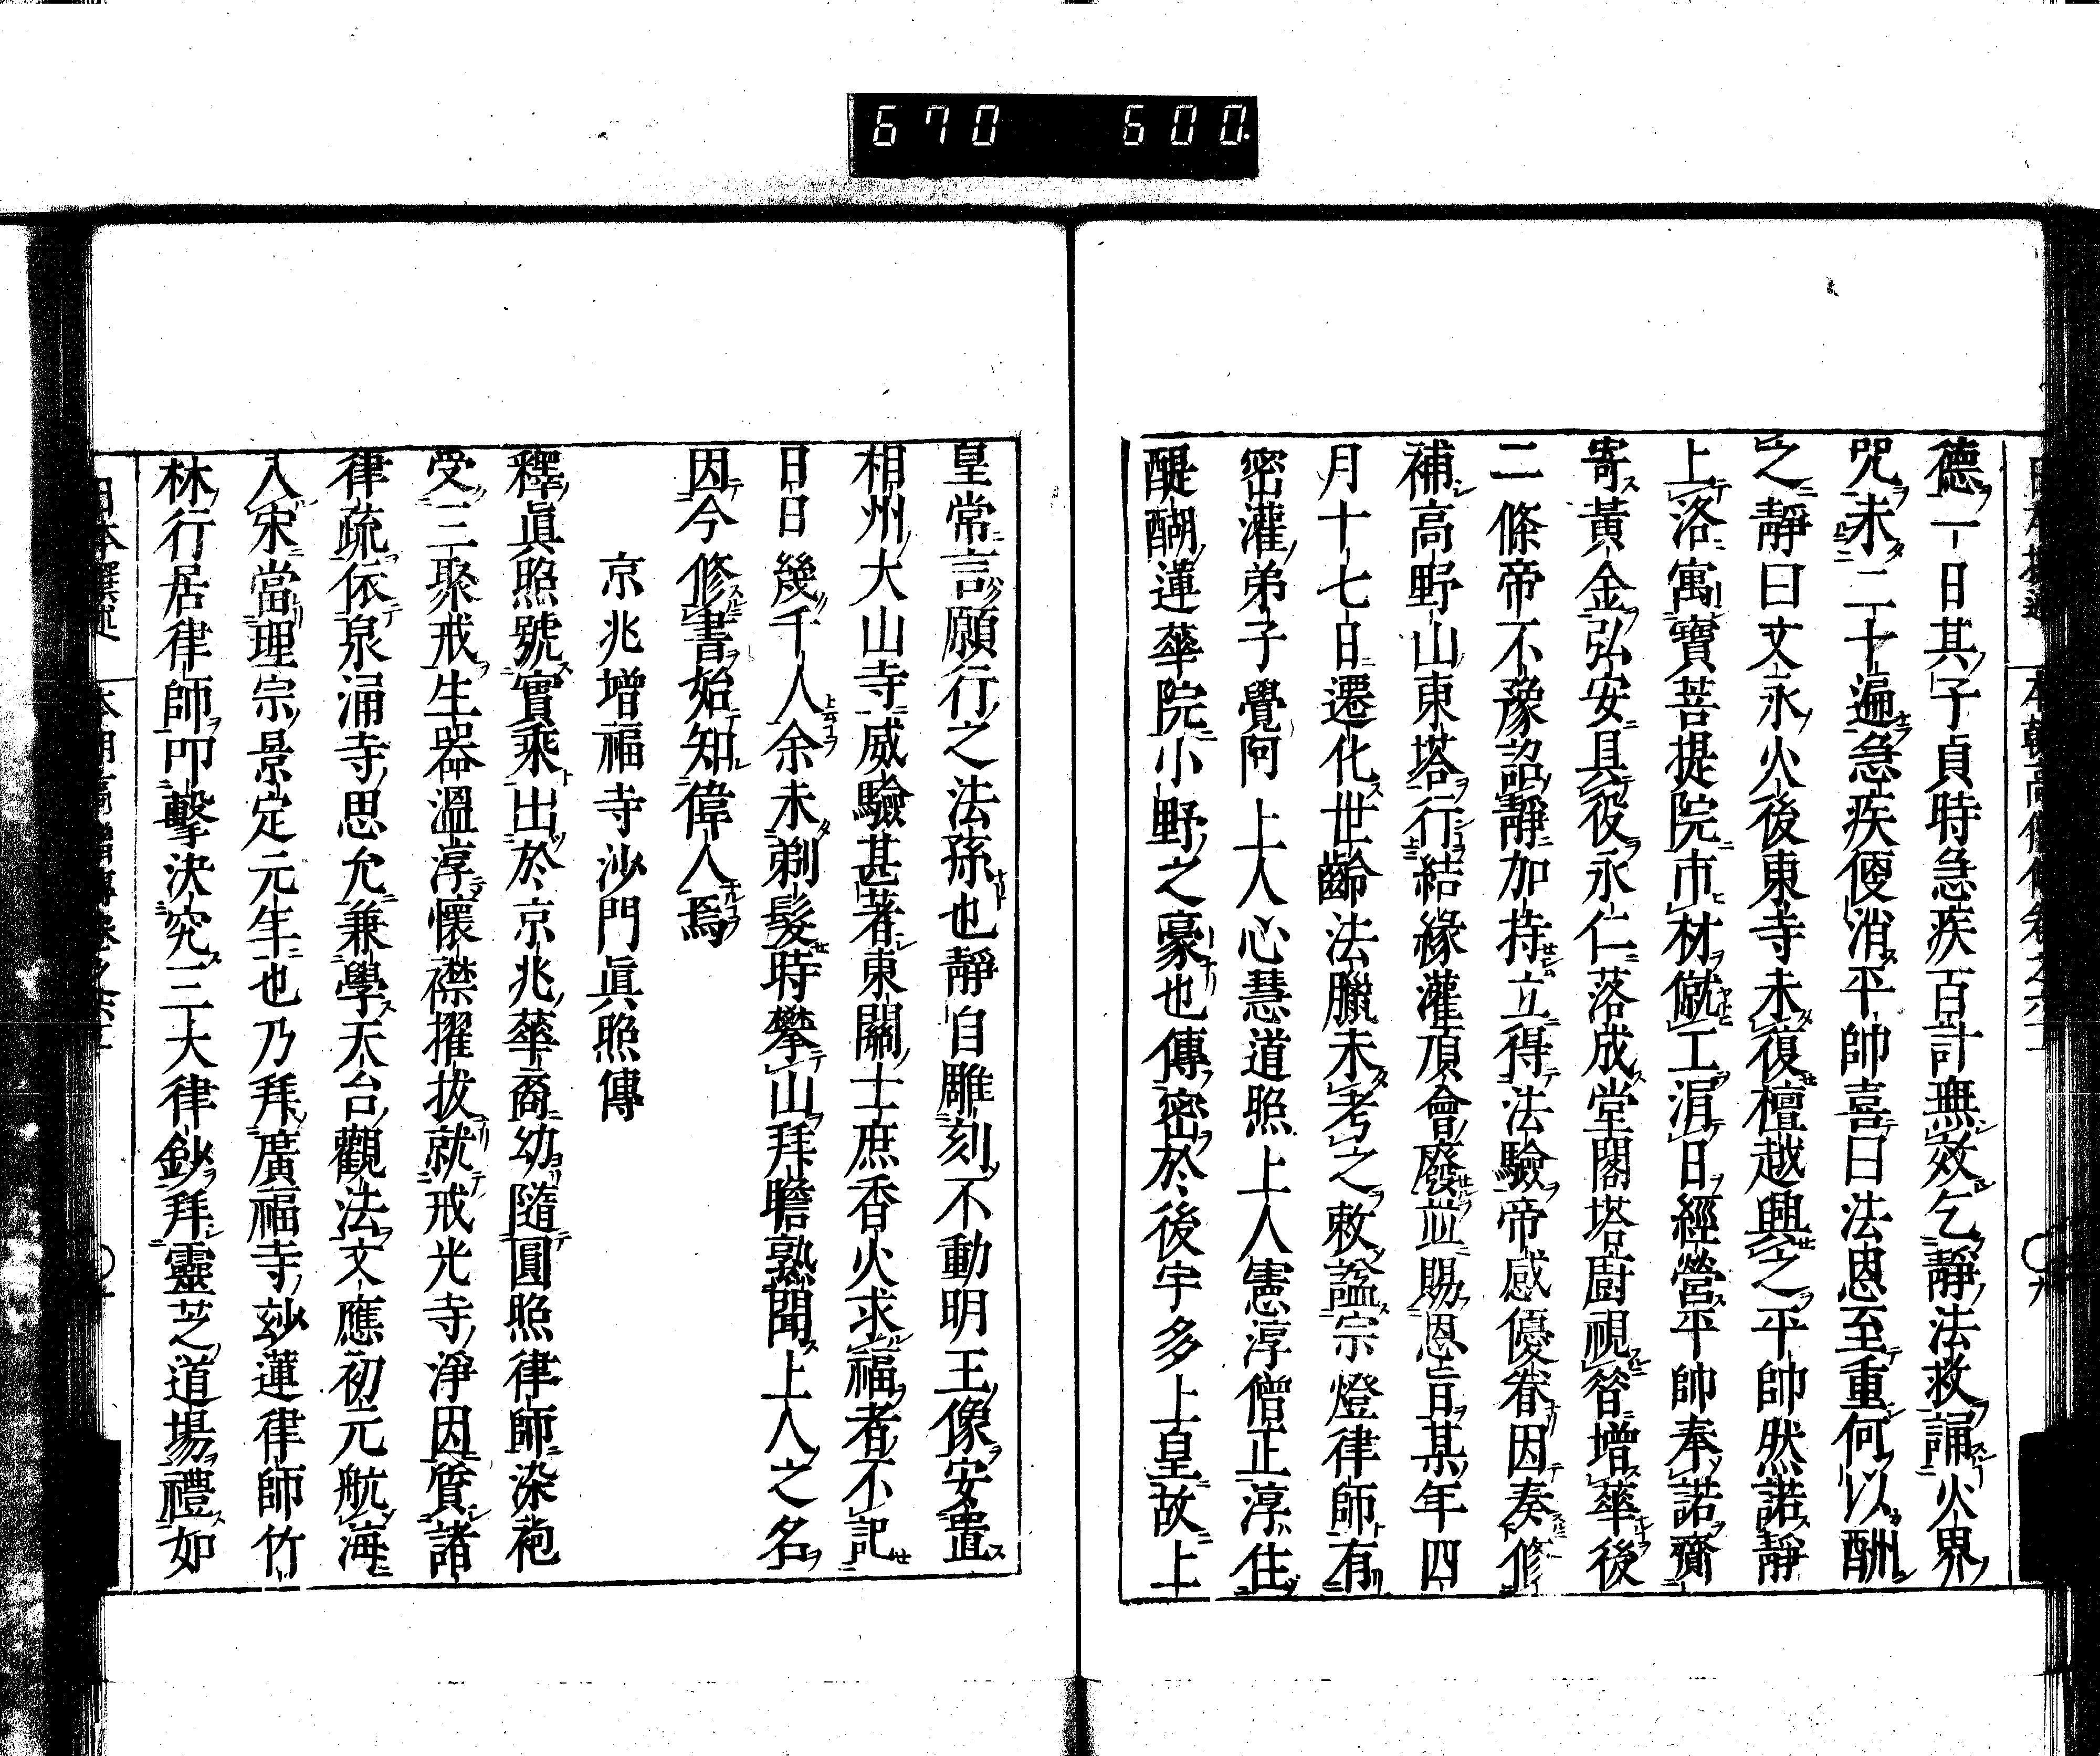 670 600.
德一日其子貞時急疾百計無效乞靜法救誦火界
咒未二十遍急疾便消平帥喜曰法恩至重何以酬
之靜曰文永火後東寺未復檀越興之平帥然諾靜
上洛寓寶菩提院市材僦工涓日經營平帥奉諾齎
寄黃金弘安具役永仁落成堂閣塔廚視昝增華後
二條帝不豫詔靜加持立得法驗帝感優眷因奏修
補高野山東塔行結緣灌頂會廢並賜恩旨某年四
月十七日遷化世齡法臘未考之敕謚宗燈律師有
密灌弟子覺阿上人心慧道照上人憲淳僧正淳住
醍醐蓮華院小野之豪也傳密於後宇多上皇故上
皇常言願行之法孫也靜自雕刻不動明王像安置
相州大山寺威驗甚著東關士庶香火求福者不記
日日幾千人余未剃髮時攀山拜瞻熟聞上人之名
因今修書始知偉人焉
京兆增福寺沙門眞照傳
釋眞照號實乘出於京兆華裔幼隨圓照律師染袍
受三聚戒生器溫淳懷襟擢拔就戒光寺淨因質諸
律疏依泉涌寺思允兼學天台觀法文應初元航海
入宋當理宗景定元年也乃拜廣福寺妙蓮律師竹
林行居律師叩擊決究三大律鈔拜靈芝道場禮如